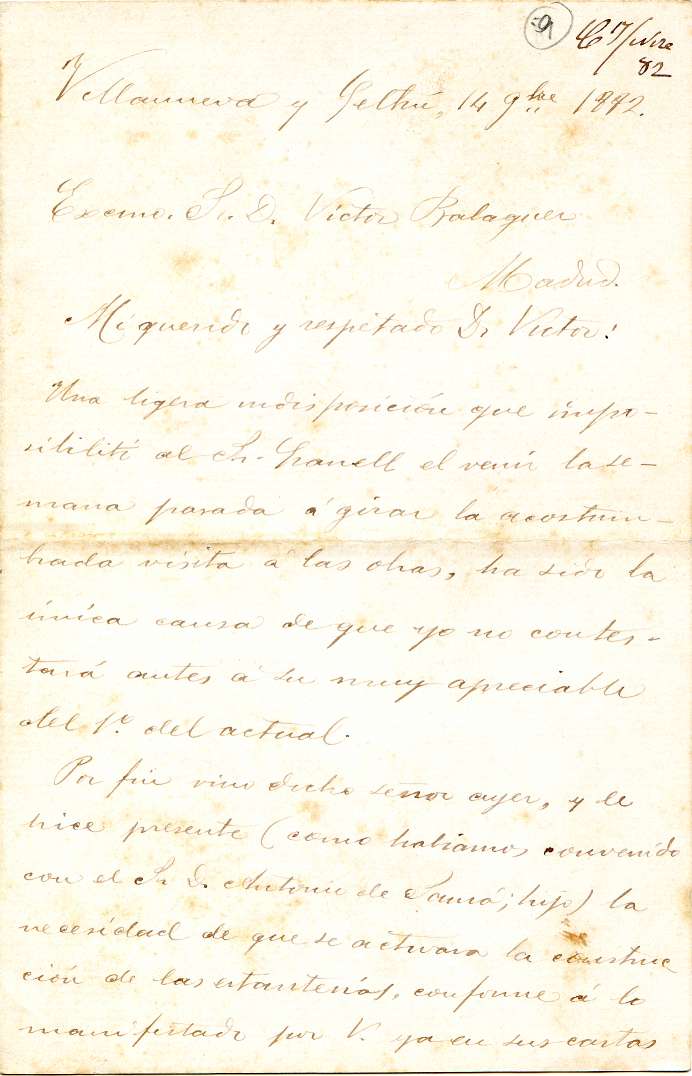 6.
C 17/nbre
82
Villanueva y Geltrú, 14 9bre 1882.
Excmo. Sr. D. Victor Balaguer
Madrid.
Mi querido y respetado Dn Victor:
Una ligera indisposición que impo-
sibilitó al Sr. Granell el venir la se-
mana pasada á girar la acostum-
brada visita á las obras, ha sido la
única causa de que yo no contes-
tará antes á su muy apreciable
del 1º del actual.
Por fin vino dicho señor ayer, y le
hice presente (como habiamos convenido
con el Sr. D. Antonio de Samá; hijo) la
necesidad de que se activara la construc
ción de las estanterías, conforme á lo
manifestado por V. ya en sus cartas